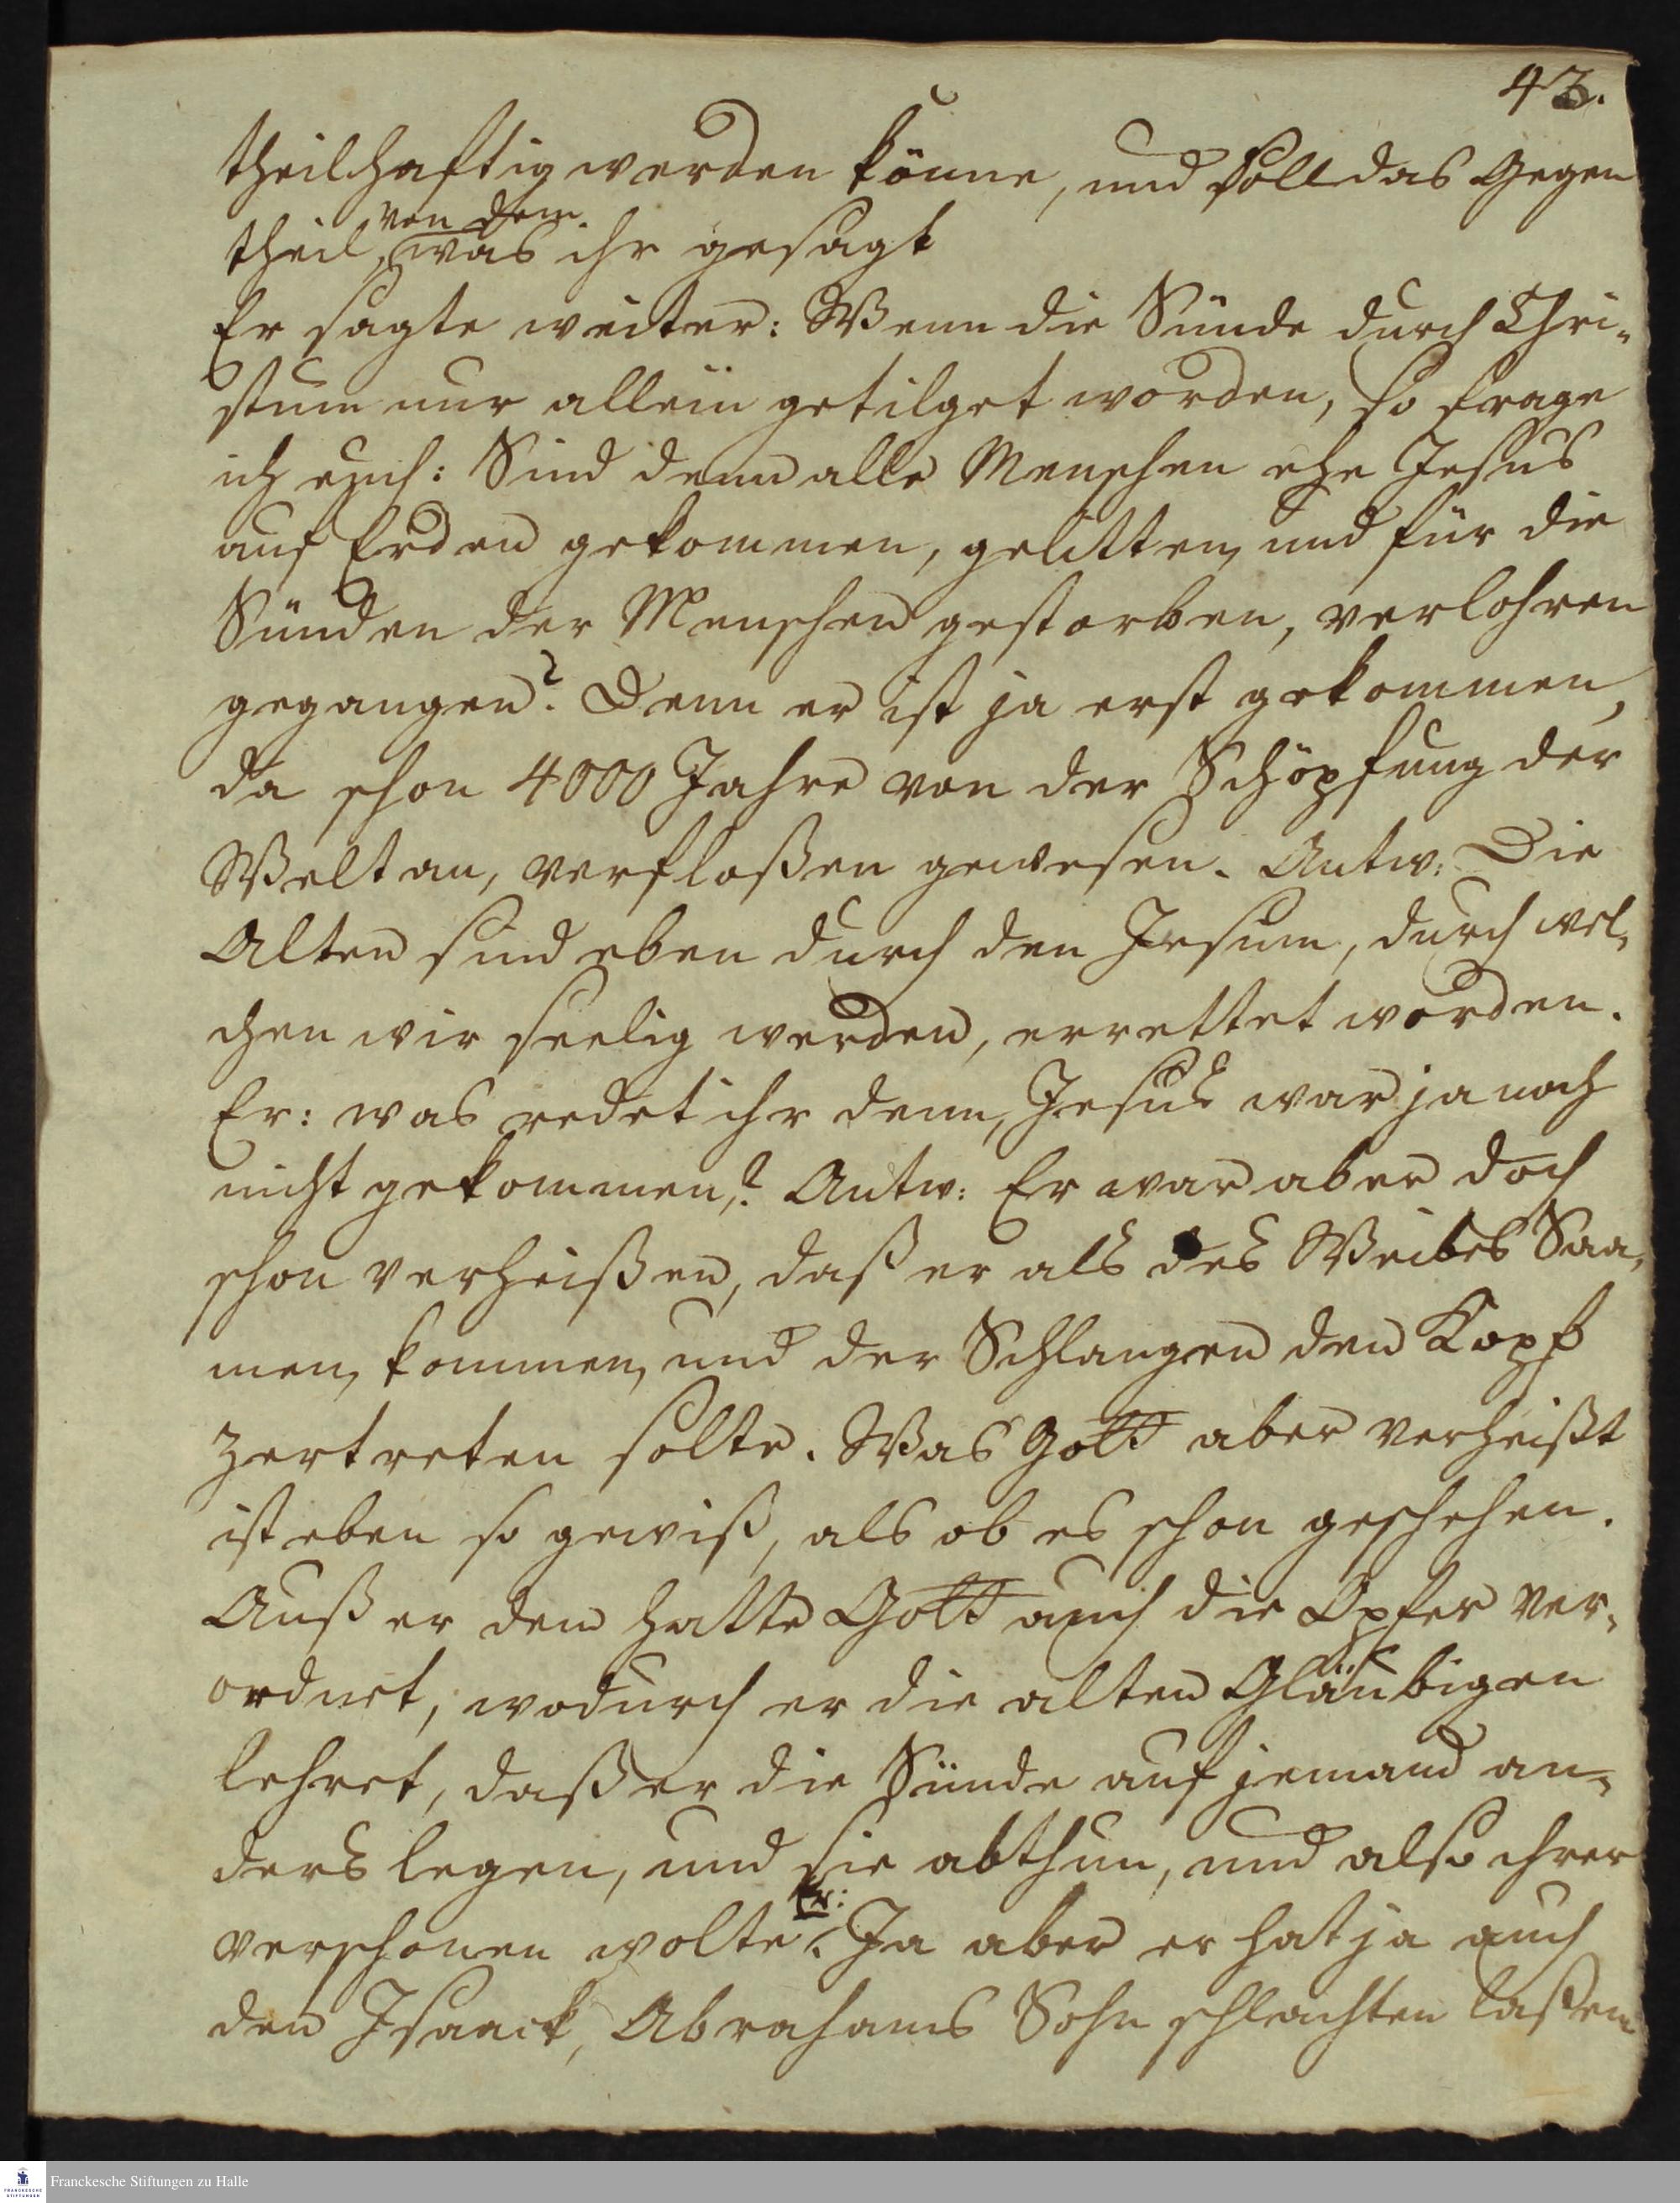 43.
theilhaftig werden könne, und soll das Gegen
von dem
theil, was ihr gesagt
Er sagte weiter: Wenn die Sünde durch Chri-
stum nur allein getilget worden, so frage
ich euch: Sind denn alle Menschen ehe Jesus
auf Erden gekommen, gelitten, und für die
Sünden der Menschen gestorben, verlohren
gegangen? Denn er ist ja erst gekommen,
da schon 4000 Jahre von der Schöpfung der
Welt an, verfloßen gewesen. Antw: Die
Alten sind eben durch den Jesum, durch wel-
chen wir seelig werden, errettet worden.
Er: was redet ihr denn, Jesus war ja noch
nicht gekommen,? Antw: Er war aber doch
schon verheißen, daß er als des Weibes Saa-
men, kommen, und der Schlangen den Kopf
zertreten solte. Was Gott aber verheißt
ist eben so gewiß, als ob es schon geschehen.
Außer dem hatte Gott auch die Opfer ver-
ordnet, wodurch er die alten Gläubigen
lehret, daß er die Sünde auf jemand an-
ders legen, und sie abthun, und also ihrer
Er:
verschonen wolte. Ja aber er hat ja auch
den Isaack, Abrahams Sohn schlachten laßen
Franckesche Stiftungen zu Halle
FRANCKESCHE
STIFTUNGEN